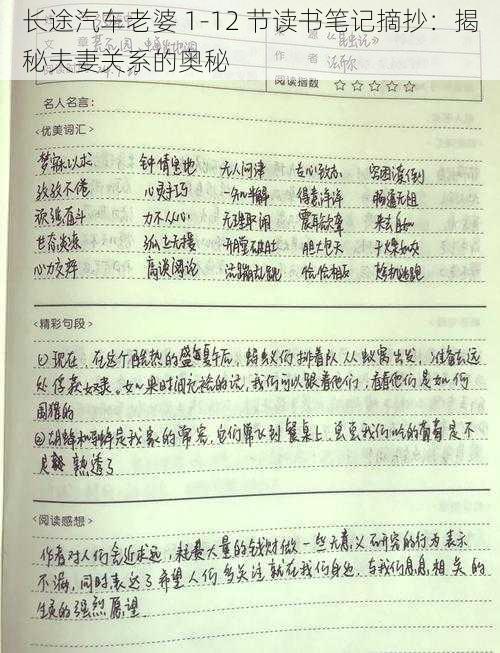 长途汽车老婆 1-12 节读书笔记摘抄：揭
秘夫妻关系的奥秘
《昆虫记》
作 者 法布尔
阅读指数 ☆☆☆☆☆
名人名言：
<优美词汇>
梦寐以求 钟情圣地 无人问津 苦心孤
孜孜不倦 心灵手巧 一知半解 得意洋洋 畅通无阻
顽强奋斗 力不从心 无理取闹 震耳欲聋 来去自如
世态炎凉 孤立无援 开膛破肚 胆大包天
心力交瘁 高谈阔论 活蹦乱跳 恰恰相反
<精彩句段>
①现在，在这个酷热的盛夏午后，蚂蚁们排着队从蚁窝出发，准备去远
处俘获奴隶。如果时间允许的话，我们可以跟着他们，看看他们是如何
围猎的
②胡蜂和蜂是我家的常客，它们常飞到餐桌上，看我们吃的葡萄是不
是熟透了
<阅读感想>
作者对人们舍近求远，耗费大量的钱财做一些无意义研究的行为表示
不满，同时表达了希望人们多关注就在我们身边，与我们息息相关的
生灵的强烈愿望